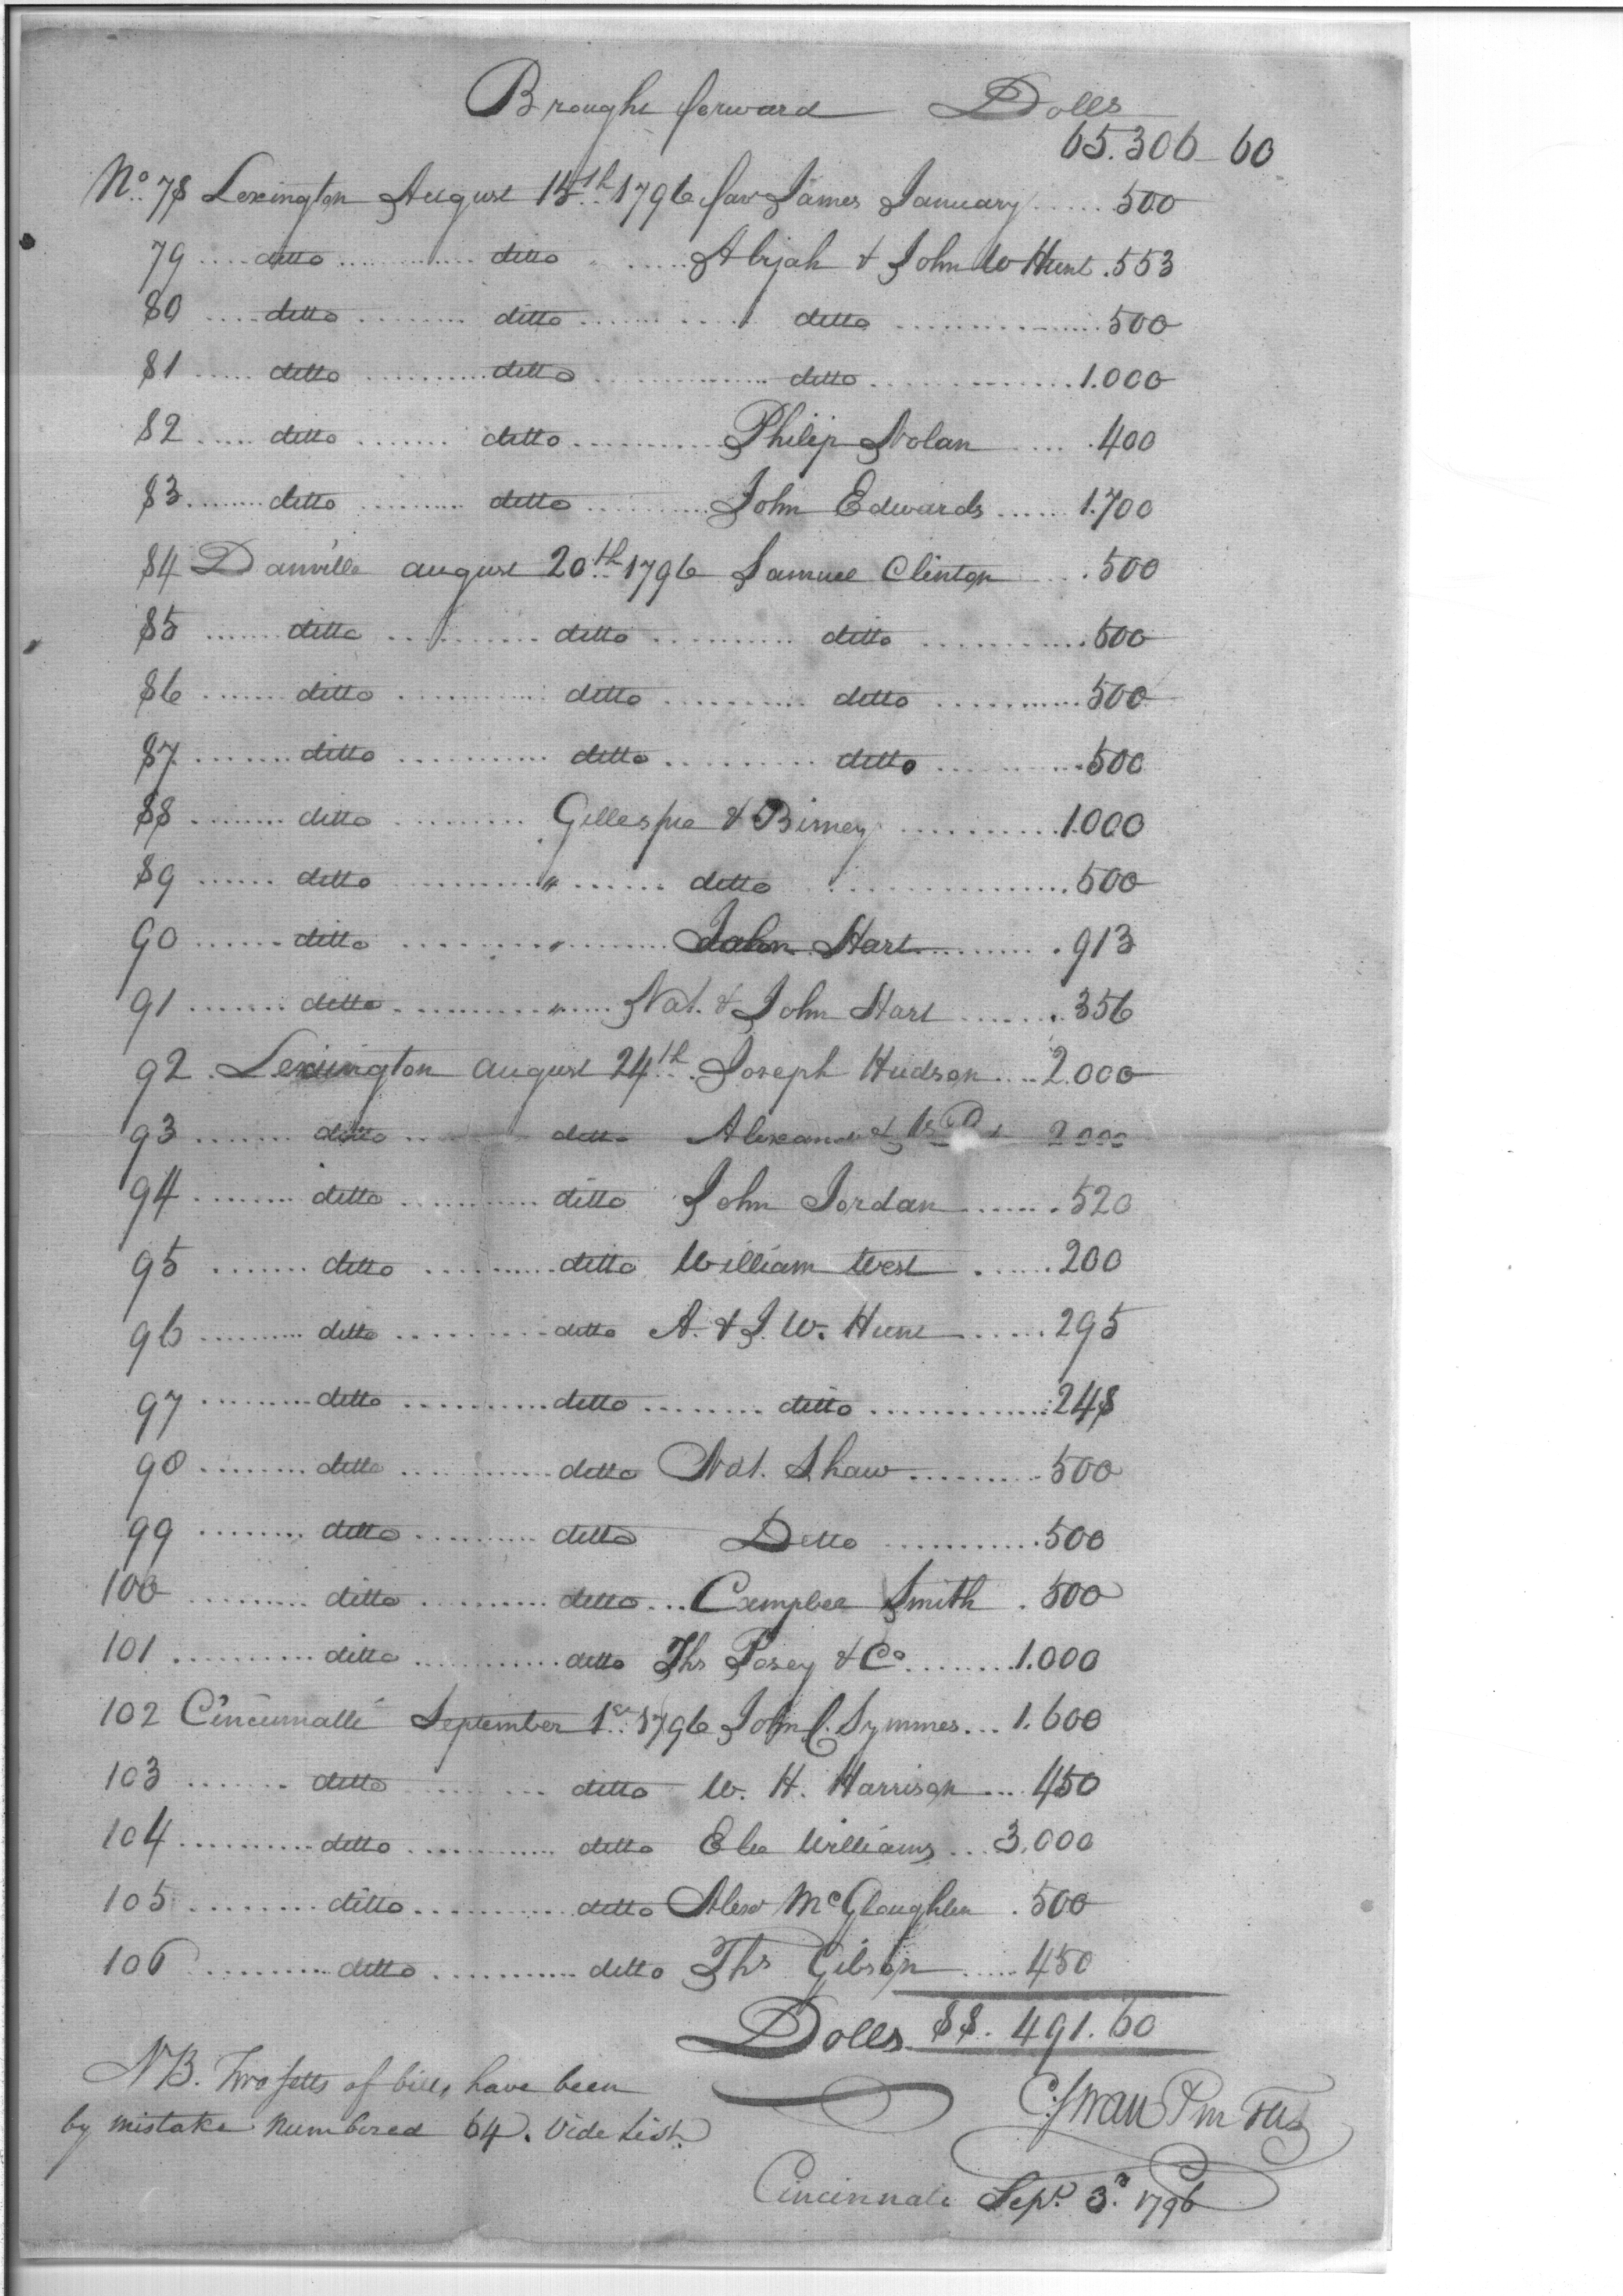 Brought forward Dolls
65.306 60
No. 78 Lexington August 15th 1796 fav James January ..... 500
79 .... ditto ............ ditto ....... Abijah & John W Hunt . 553
80 .... ditto ......... ditto ............ ditto ............... 500
81 ..... ditto .......... ditto .............. ditto ............. 1.000
82 ..... ditto ....... ditto ........... Philip Nolan .... 400
83 ....... ditto ......... ditto .......... John Edwards ...... 1.700
84 Danville august 20th 1796 Samuel Clinton .... 500
85 ...... ditto ........... ditto .......... ditto ............ 500
86 ....... ditto ............ ditto .......... ditto ........... 500
87 ....... ditto ........... ditto .......... ditto ........... 500
88 ........ ditto ......... Gillespie & Birney ........... 1.000
89 ...... ditto ........... " ...... ditto ................ 500
90 ...... ditto .......... " ........ John Hart .......... 913
91 ....... ditto ........... " ..... Nat. & John Hart ....... 356
92 . Lexington august 24th . Joseph Hudson .... 2.000
93 ....... ditto ... ditto 2000
94 ........ ditto ........... ditto John Jordan ...... 520
95 ....... ditto .......... ditto William West ...... 200
96 ......... ditto .......... ditto A. & J. W. Hunt ...... 295
97 ......... ditto ........... ditto ........ ditto ............. 248
98 ........ ditto ............ ditto Nat. Shaw .......... 500
99 ........ ditto .......... ditto Ditto ............ 500
100 ......... ditto .......... ditto ... Campbel Smith . 500
101 .......... ditto ............ ditto Ths Posey & Co ........ 1.000
102 Cincinnatti September 1st 1796 John C. Symmes ... 1.600
103 ....... ditto ......... ditto W. H. Harrison ... 450
104 .......... ditto ............ ditto Elie Williams ... 3.000
105 ......... ditto ............ ditto Alexr McGloughlin . 500
106 ......... ditto ........... ditto Ths Gibson ..... 450
Dolls 88. 491. 60
NB. Two setts of bills have been
by mistake numbered 64. Vide List.
C. Swan
Cincinnati Sept. 3d. 1796